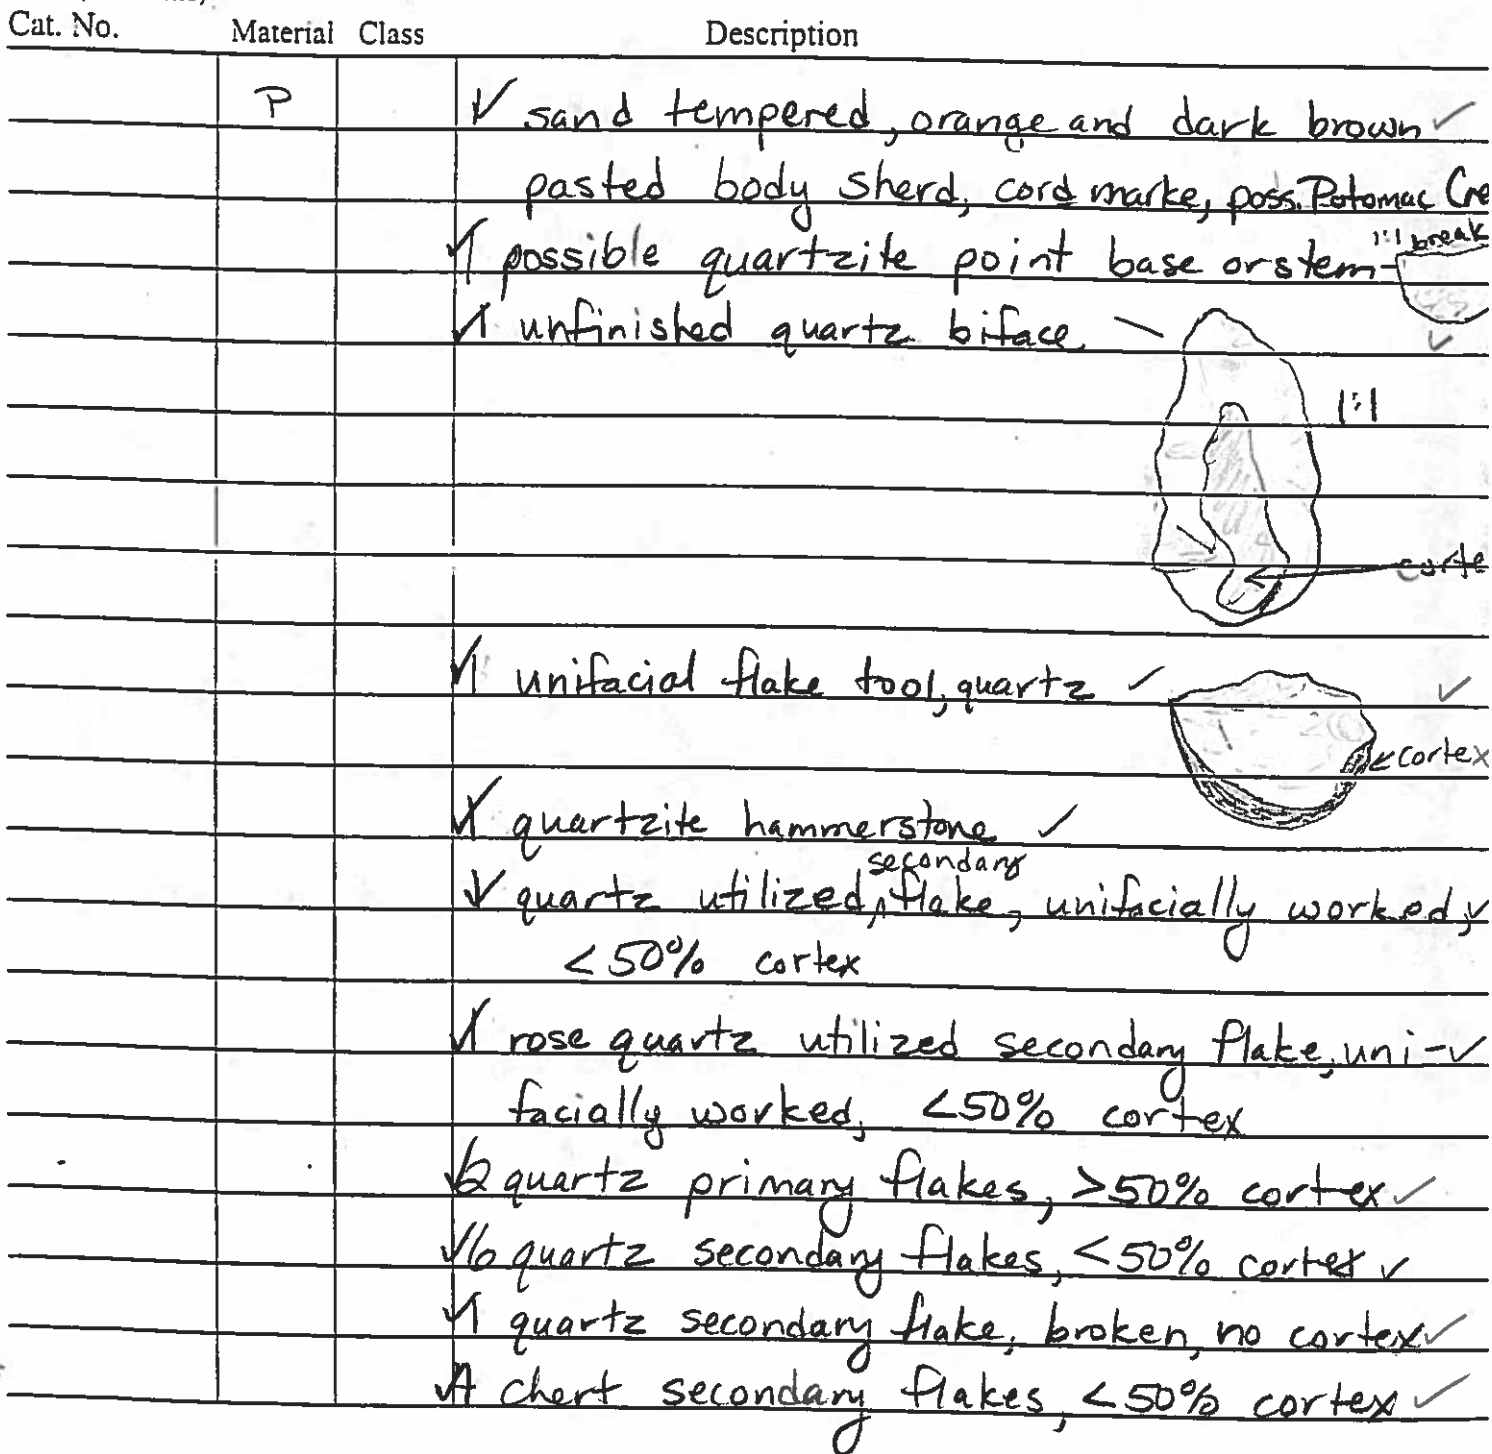 Cat. No. Material Class Description
P ✓ sand tempered, orange and dark brown ✓
pasted body sherd, cord marke, poss. Potomac Cre
✓1 possible quartzite point base or stem- 1:1 break
✓1 unfinished quartz biface ✓
1:1
corte
✓1 unifacial flake tool, quartz ✓ ✓
cortex
✓1 quartzite hammerstone ✓
secondary
✓ quartz utilized, ^ flake, unifacially worked, ✓
<50% cortex
✓1 rose quartz utilized secondary flake, uni- ✓
facially worked, <50% cortex
✓2 quartz primary flakes, >50% cortex ✓
✓6 quartz secondary flakes, <50% cortex ✓
✓1 quartz secondary flake, broken, no cortex ✓
chert secondary flakes, <50% cortex ✓